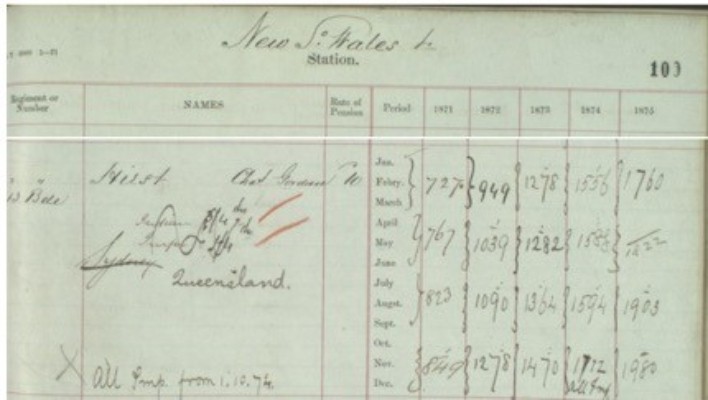 New So. Wales
Station.
103
Regiment or Number NAMES Rate of Pension Period 1871 1872 1873 1874 1875
Hirst Chas. Gordon 10
Jan.
Febry. 727 949 1278 1556 1760
March
April
May 767 1039 1282 1588 1822
June
Sydney
Queensland.
July
Augst. 823 1090 1364 1594 1903
Sept.
Oct.
Nov. 849 1278 1470 1712 1980
Dec. All Imp
X All Imp. from 1.10.74.